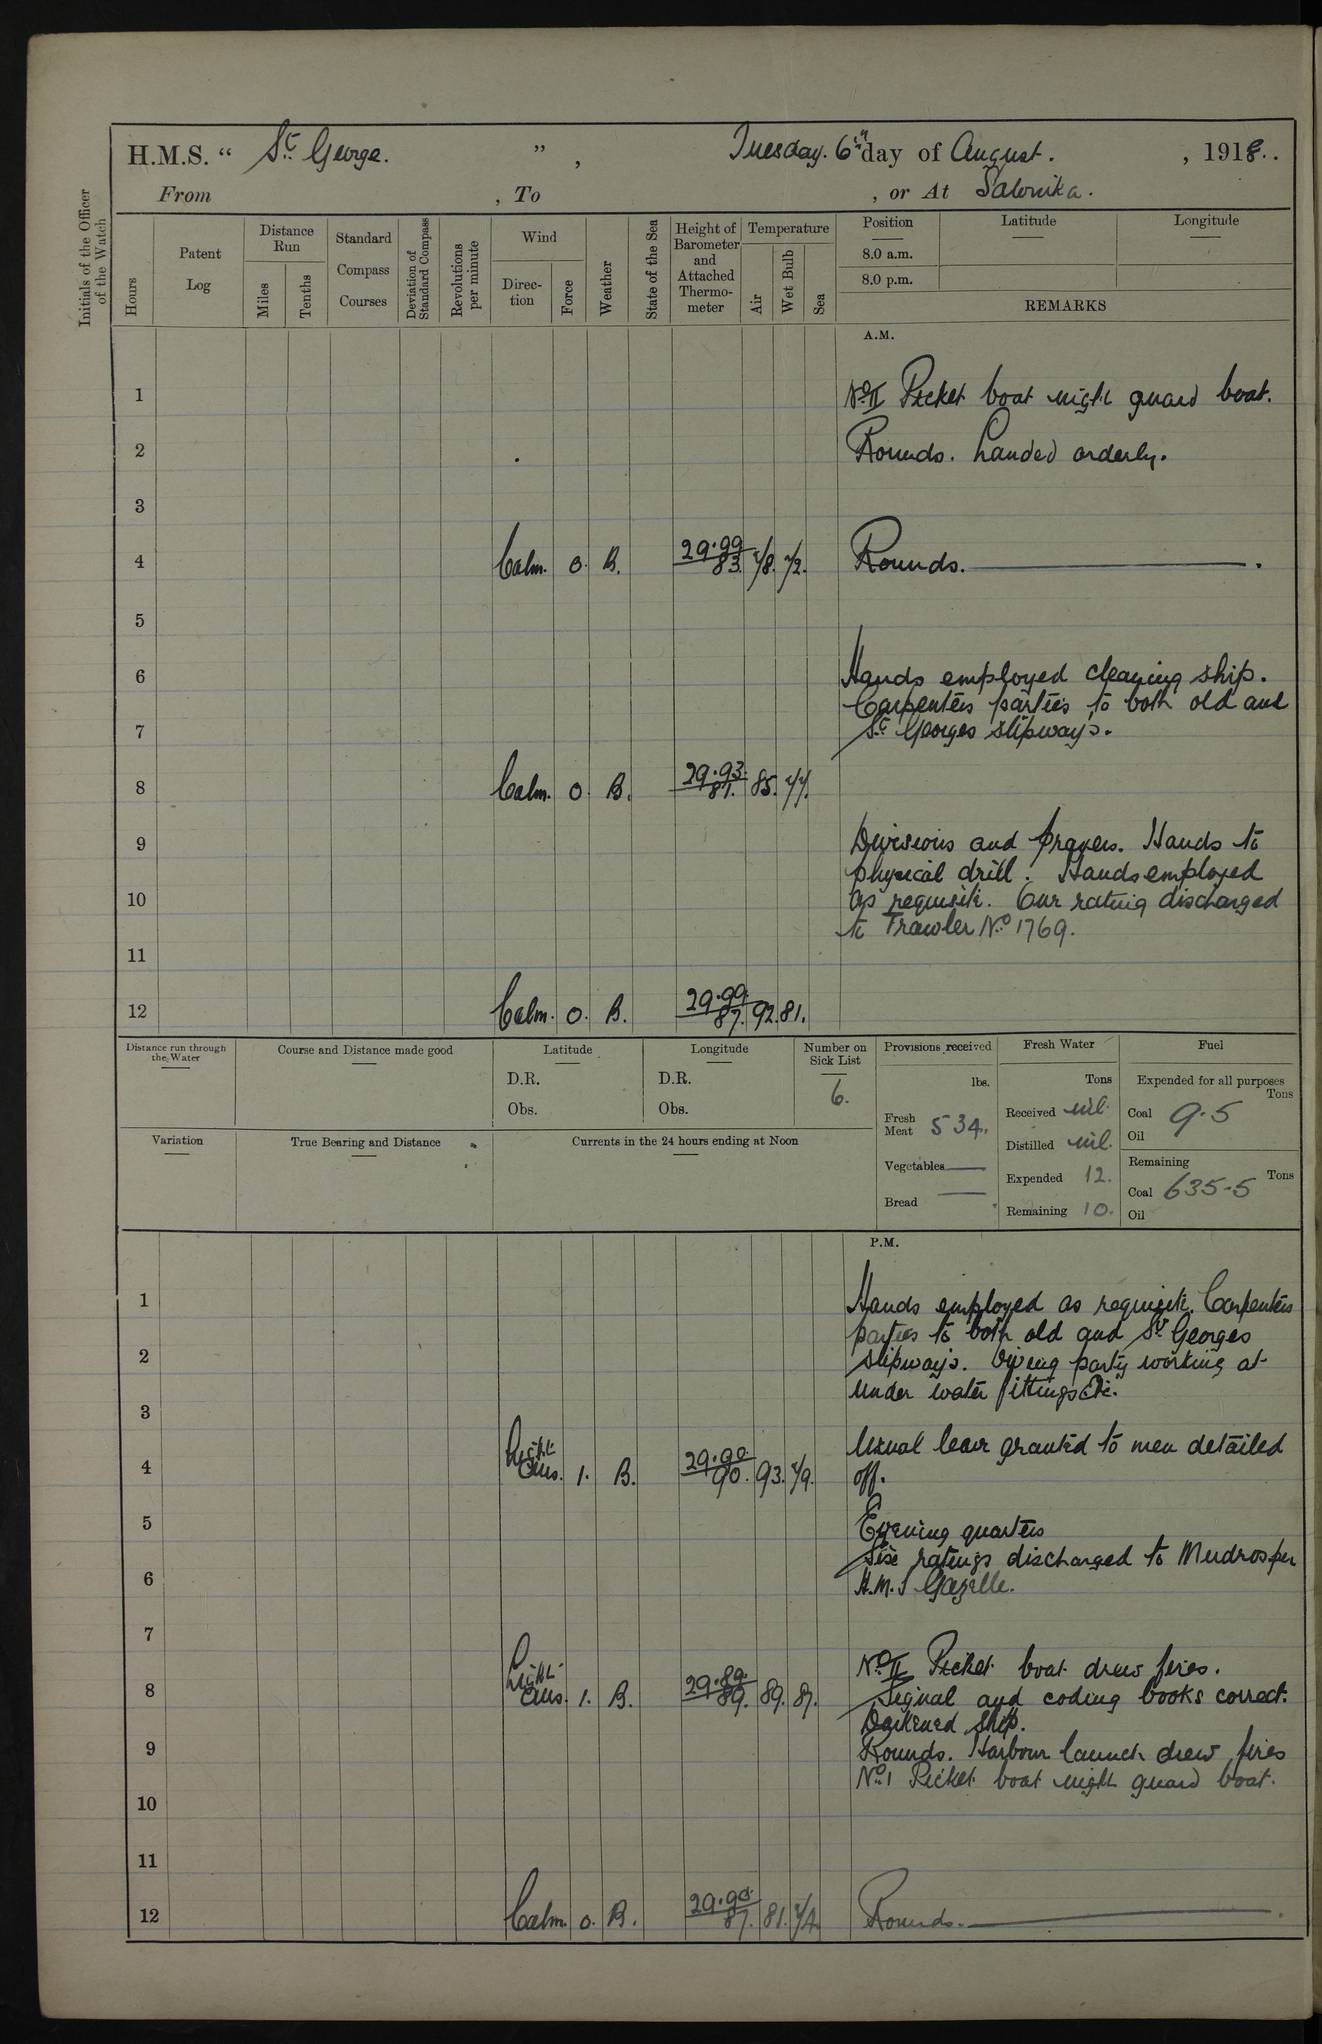 H.M.S. “ St George. ” , Tuesday. 6th day of August. , 1918..
From , To , or At Salonika.
Initials of the Officer of the Watch
Hours
Patent Log
Distance Run
Miles
Tenths
Standard Compass Courses
Deviation of Standard Compass
Revolutions per minute
Wind
Direction
Force
Weather
State of the Sea
Height of Barometer and Attached Thermometer
Temperature
Air
Wet Bulb
Sea
Position Latitude Longitude
8.0 a.m.
8.0 p.m.
REMARKS
A.M.
1 No II Picket boat night guard boat.
2 Rounds. Landed orderly.
3
4 Calm. 0. B. 29.99 83. 78. 72. Rounds.
5
6 Hands employed cleaning ship.
Carpenters parties to both old and
7 St Georges slipways.
8 Calm. 0. B. 29.93. 81. 85. 77.
9 Divisions and prayers. Hands to
physical drill. Hands employed
10 as requisite. One rating discharged
to Trawler No 1769.
11
12 Calm. 0. B. 29.99. 87. 92. 81.
Distance run through the Water
Course and Distance made good
Latitude
D.R.
Obs.
Longitude
D.R.
Obs.
Number on Sick List
6.
Provisions received
lbs.
Fresh Meat 534.
Vegetables
Bread
Fresh Water
Tons
Received nil.
Distilled nil.
Expended 12.
Remaining 10.
Fuel
Expended for all purposes
Tons
Coal 9.5
Oil
Remaining
Tons
Coal 635-5
Oil
Variation
True Bearing and Distance
Currents in the 24 hours ending at Noon
P.M.
1 Hands employed as requisite. Carpenters
parties to both old and St Georges
2 slipways. Diving party working at
under water fittings Etc.
3
Usual leave granted to men detailed
4 Light Airs. 1. B. 29.90. 90. 93. 79. off.
5 Evening quarters
Six ratings discharged to Mudros per
6 H.M.S Gazelle.
7
No II Picket boat drew fires.
8 Light Airs. 1. B. 29.89. 89. 89. 87. Signal and coding books correct.
Darkened ship.
9 Rounds. Harbour launch drew fires
No 1 Picket boat night guard boat.
10
11
12 Calm. 0. B. 29.90. 87. 81. 74. Rounds.